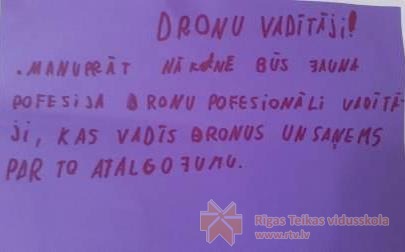 DRONU VADĪTĀJI!
. MANUPRĀT NĀKONĒ BŪS JAUNA
POFESIJA DRONU POFESIONĀLI VADĪTĀ-
JI, KAS VADĪS DRONUS UN SAŅEMS
PAR TO ATALGOJUMU.
Rīgas Teikas vidusskola
www.rtv.lv